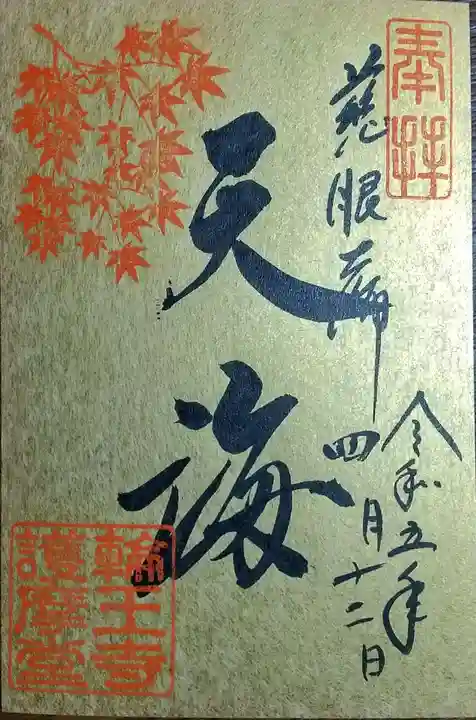 奉拝
慈眼
令和五年
四月十二日
天海
輪王寺
護摩堂